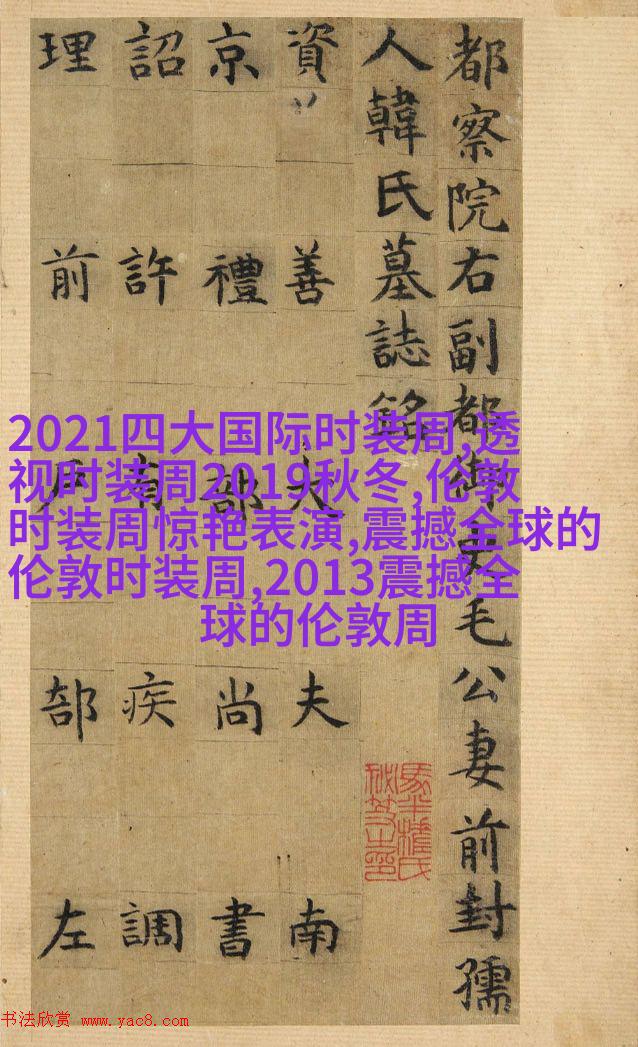 都察院右副都御史毛公妻前封孺
人韓氏墓誌銘
資善大夫南
京禮部尚書
詔許有疾調
理前户部左
2021四大国际时装周,透
视时装周2019秋冬,伦敦
时装周惊艳表演,震撼全球的
伦敦时装周,2013震撼全
球的伦敦周
书法欣赏 www.yac8.com